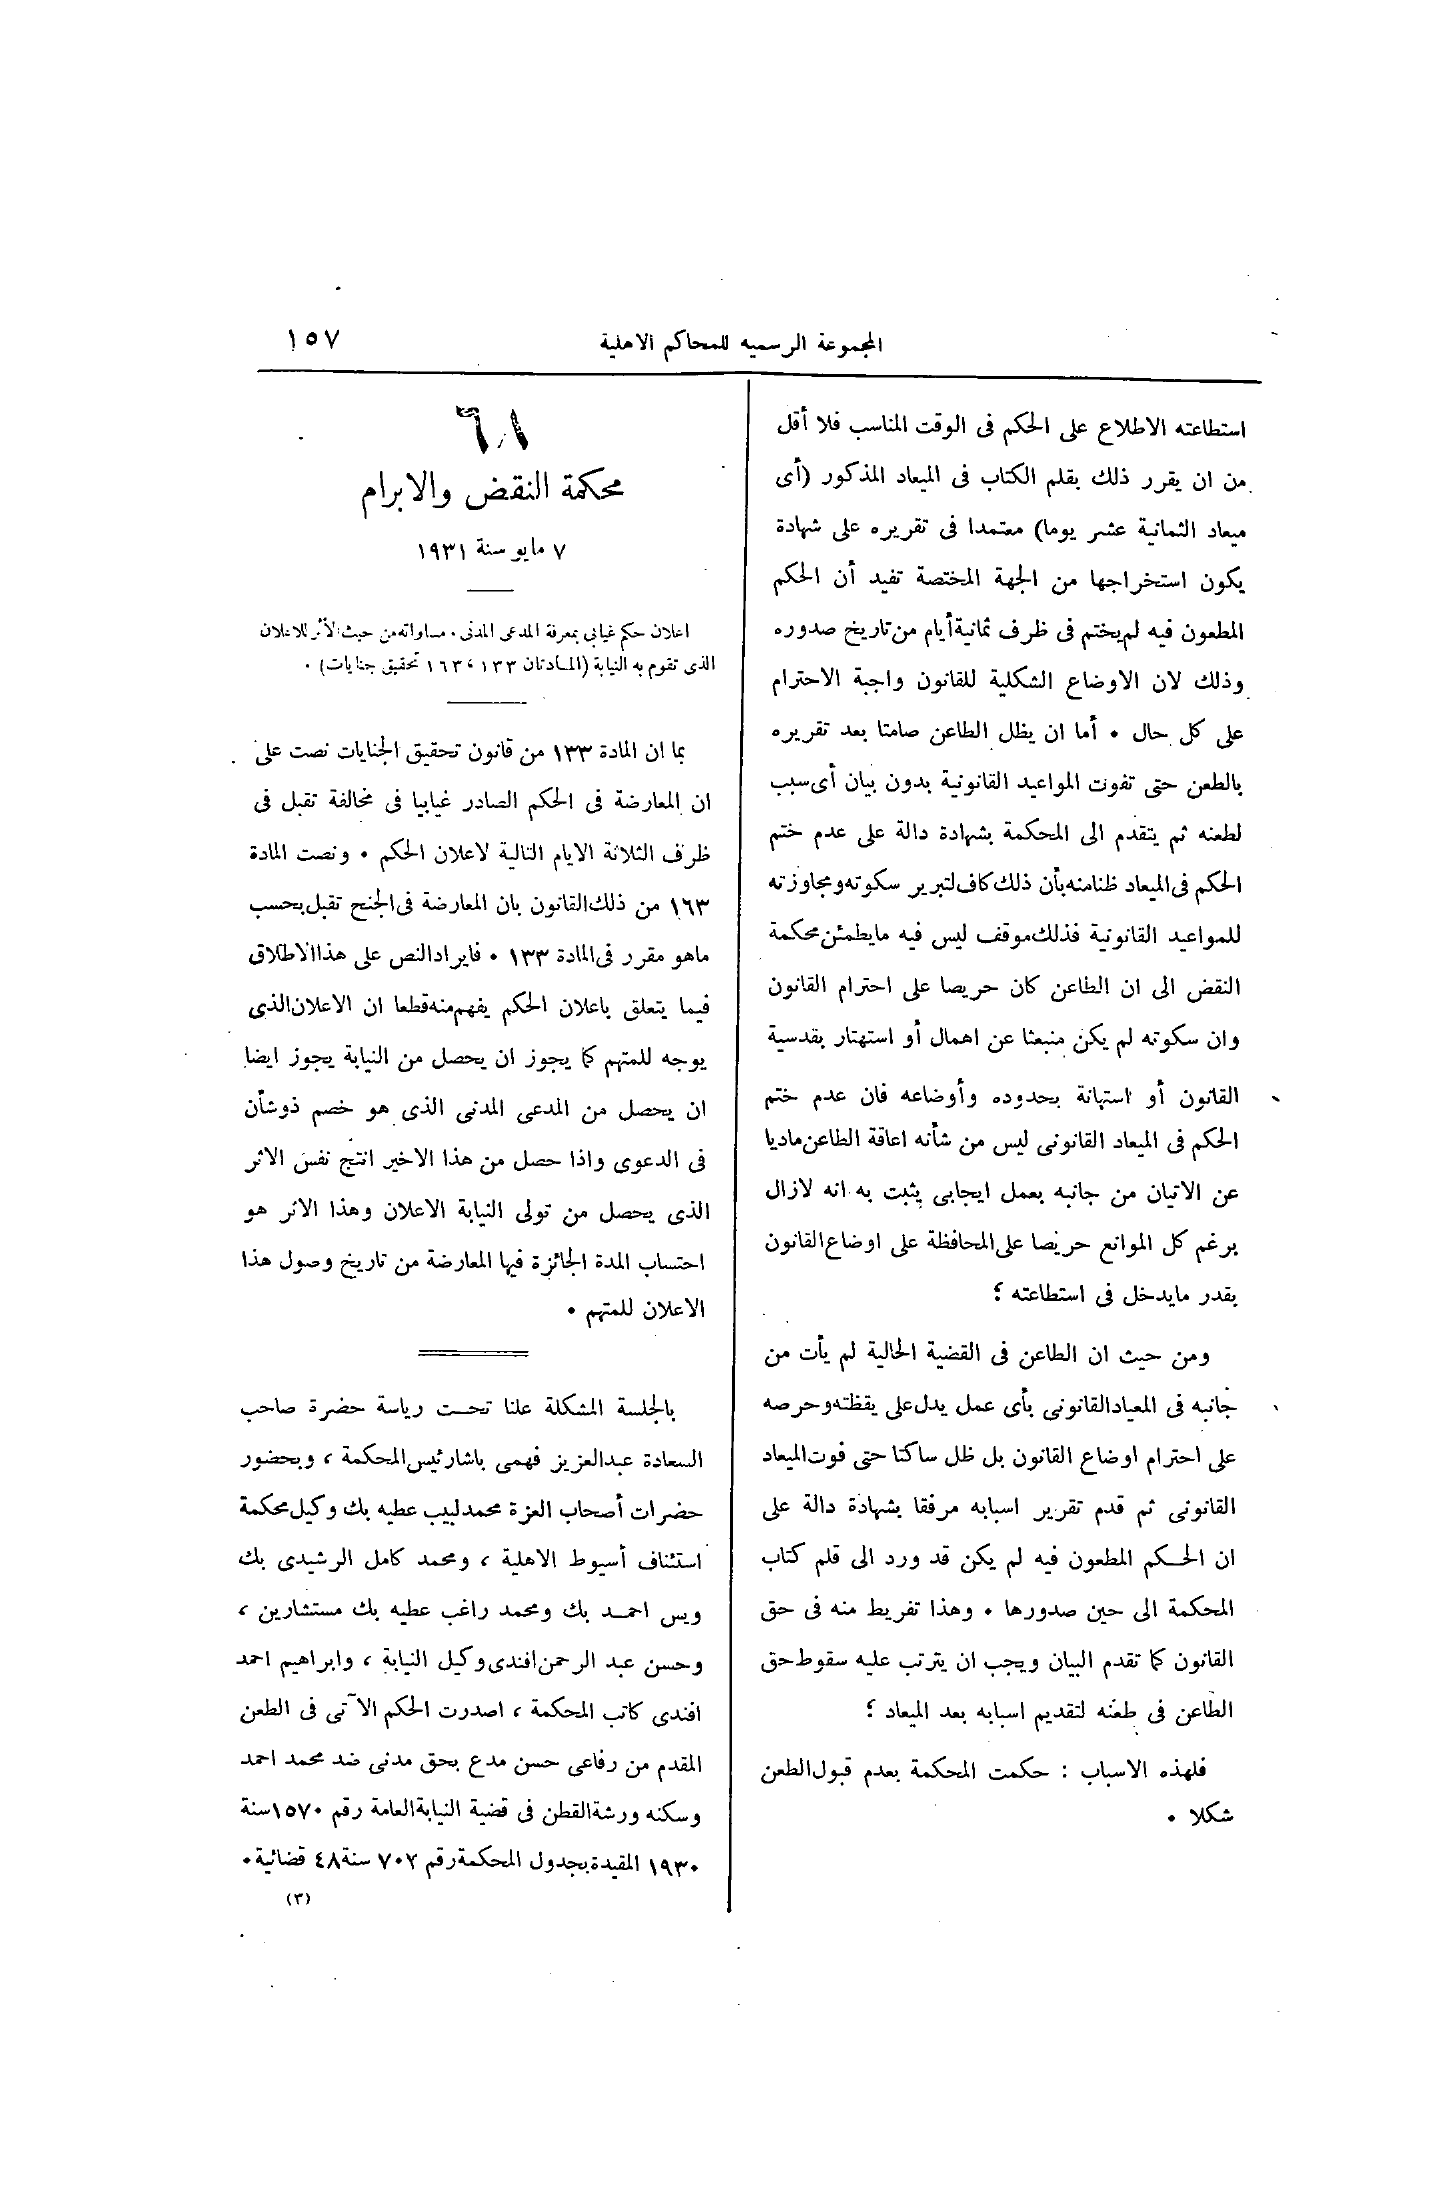 المجموعة الرسميه للمحاكم الاهلية
١٥٧
استطاعته الاطلاع على الحكم فى الوقت المناسب فلا أقل
من ان يقرر ذلك بقلم الكتاب فى الميعاد المذكور (أى
ميعاد الثمانية عشر يوما) معتمدا فى تقريره على شهادة
يكون استخراجها من الجهة المختصة تفيد أن الحكم
المطعون فيه لم يختم فى ظرف ثمانية أيام من تاريخ صدوره
وذلك لان الاوضاع الشكلية للقانون واجبة الاحترام
على كل حال • أما ان يظل الطاعن صامتا بعد تقريره
بالطعن حتى تفوت المواعيد القانونية بدون بيان أى سبب
لطعنه ثم يتقدم الى المحكمة بشهادة دالة على عدم ختم
الحكم فى الميعاد ظنا منه بأن ذلك كاف لتبرير سكوته ومجاوزته
للمواعيد القانونية فذلك موقف ليس فيه ما يطمئن محكمة
النقض الى ان الطاعن كان حريصا على احترام القانون
وان سكوته لم يكن منبعثا عن اهمال أو استهتار بقدسية
القانون أو استهانة بحدوده وأوضاعه فان عدم ختم
الحكم فى الميعاد القانونى ليس من شأنه اعاقة الطاعن ماديا
عن الاتيان من جانبه بعمل ايجابى يثبت به انه لازال
برغم كل الموانع حريصا على المحافظة على اوضاع القانون
بقدر مايدخل فى استطاعته ؛
ومن حيث ان الطاعن فى القضية الحالية لم يأت من
جانبه فى المعياد القانونى بأى عمل يدل على يقظته وحرصه
على احترام اوضاع القانون بل ظل ساكتا حتى فوت الميعاد
القانونى ثم قدم تقرير اسبابه مرفقا بشهادة دالة على
ان الحكم المطعون فيه لم يكن قد ورد الى قلم كتاب
المحكمة الى حين صدورها • وهذا تفريط منه فى حق
القانون كما تقدم البيان ويجب ان يترتب عليه سقوط حق
الطاعن فى طعنه لتقديم اسبابه بعد الميعاد ؛
فلهذه الاسباب : حكمت المحكمة بعدم قبول الطعن
شكلا •
٦٨
محكمة النقض والابرام
٧ مايو سنة ١٩٣١
اعلان حكم غيابي بمعرفة المدعى المدنى • مساواته من حيث الأثر للاعلان
الذى تقوم به النيابة (المادتان ١٣٣ ، ١٦٣ تحقيق جنايات) •
بما ان المادة ١٣٣ من قانون تحقيق الجنايات نصت على
ان المعارضة فى الحكم الصادر غيابيا فى مخالفة تقبل فى
ظرف الثلاثة الايام التالية لاعلان الحكم • ونصت المادة
١٦٣ من ذلك القانون بان المعارضة فى الجنح تقبل بحسب
ماهو مقرر فى المادة ١٣٣ • فايراد النص على هذا الاطلاق
فيما يتعلق باعلان الحكم يفهم منه قطعا ان الاعلان الذى
يوجه للمتهم كما يجوز ان يحصل من النيابة يجوز ايضا
ان يحصل من المدعى المدنى الذى هو خصم ذو شأن
فى الدعوى واذا حصل من هذا الاخير انتج نفس الاثر
الذى يحصل من تولى النيابة الاعلان وهذا الاثر هو
احتساب المدة الجائزة فيها المعارضة من تاريخ وصول هذا
الاعلان للمتهم •
بالجلسة المشكلة علنا تحت رياسة حضرة صاحب
السعادة عبد العزيز فهمى باشا رئيس المحكمة ، وبحضور
حضرات أصحاب العزة محمد لبيب عطيه بك وكيل محكمة
استئناف أسيوط الاهلية ، ومحمد كامل الرشيدى بك
ويس احمد بك ومحمد راغب عطيه بك مستشارين ،
وحسن عبد الرحمن افندى وكيل النيابة ، وابراهيم احمد
افندى كاتب المحكمة ، اصدرت الحكم الآتى فى الطعن
المقدم من رفاعى حسن مدع بحق مدنى ضد محمد احمد
وسكنه ورشة القطن فى قضية النيابة العامة رقم ١٥٧٠ سنة
١٩٣٠ المقيدة بجدول المحكمة رقم ٧٠٢ سنة ٤٨ قضائية •
(٣)